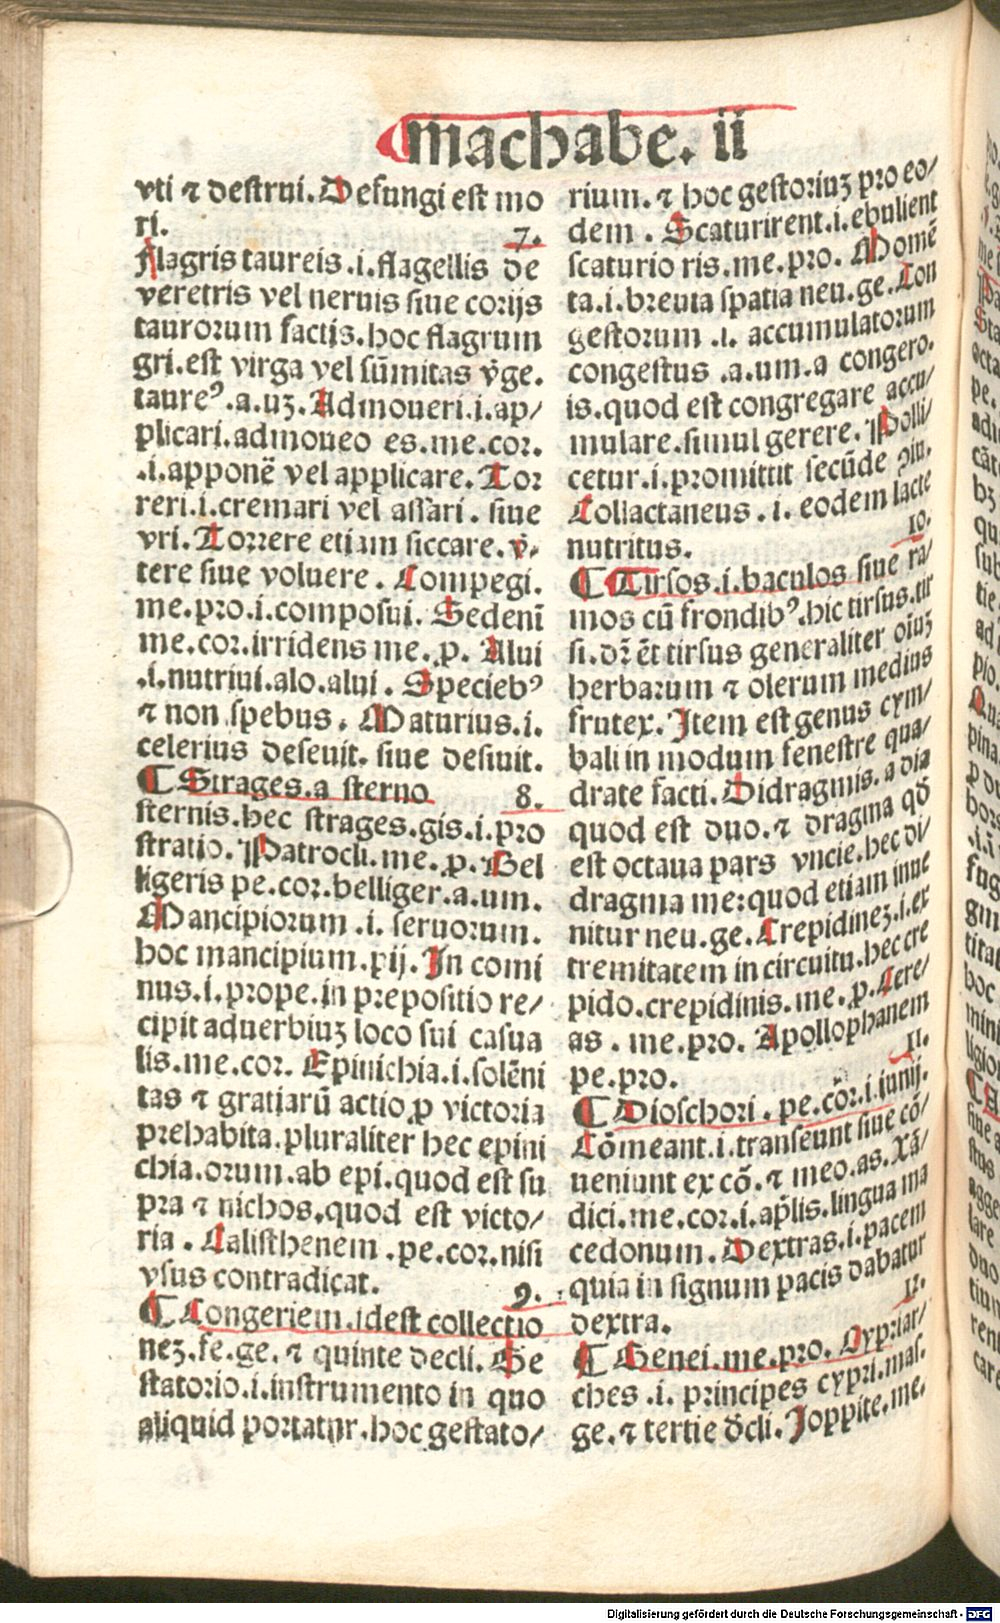 machabe. ii
vti ⁊ destrui. Defungi est mo
ri.
7.
Flagris taureis .i. flagellis de
veretris vel neruis siue corijs
taurorum factis. hoc flagrum
gri. est virga vel sūmitas v̄ge.
taureꝰ .a.uꝫ. Admoueri .i. ap/
plicari. admoueo es. me. cor.
.i. apponē vel applicare. Tor
reri .i. cremari vel assari. siue
vri. Torrere etiam siccare. v̄.
tere siue voluere. Compegi.
me. pro. i. composui. Sedenī
me. cor. irridens me. p. Alui
.i. nutriui. alo. alui. Speciebꝰ
⁊ non spebus. Maturius .i.
celerius deseuit. siue desiuit.
¶ Strages. a sterno
8.
sternis. hec strages. gis. i. pro
stratio. Patrocli. me. p. Bel
ligeris pe. cor. belliger. a. um.
Mancipiorum .i. seruorum.
hoc mancipium. pij. In comi
nus. i. prope. in prepositio re/
cipit aduerbiuꝫ loco sui casua
lis. me. cor. Epinichia. i. solēni
tas ⁊ gratiarū actio ꝓ victoria
prehabita. pluraliter hec epini
chia. orum. ab epi. quod est su
pra ⁊ nichos. quod est victo/
ria. Calisthenem. pe. cor. nisi
vsus contradicat.
9.
¶ Congeriem. idest collectio
neꝫ. fe. ge. ⁊ quinte decli. Ge
statorio. i. instrumento in quo
aliquid portatur. hoc gestato/
rium. ⁊ hoc gestoriuꝫ pro eo/
dem. Scaturirent. i. ebulient
scaturio ris. me. pro. Momē
ta. i. breuia spatia neu. ge. Con
gestorum .i. accumulatorum
congestus .a. um. a congero.
is. quod est congregare accu/
mulare. simul gerere. Polli/
cetur. i. promittit secūde ꝯiu.
Collactaneus .i. eodem lacte
nutritus.
10.
¶ Tirsos. i. baculos siue ra/
mos cū frondibꝰ. hic tirsus. tir
si. dr̄ ēt tirsus generaliter oīuꝫ
herbarum ⁊ olerum medius
frutex. Item est genus cym/
bali in modum fenestre qua/
drate facti. Didragmis. a dia
quod est duo. ⁊ dragma qđ
est octaua pars vncie. hec di/
dragma me: quod etiam inue
nitur neu. ge. Crepidineꝫ. i. ex
tremitatem in circuitu. hec cre
pido. crepidinis. me. p. Cere/
as. me. pro. Apollophanem
pe. pro.
11.
¶ Dioschori. pe. cōr. i. iunij.
Cōmeant. i. transeunt siue cō/
ueniunt ex cō. ⁊ meo. as. Xā/
dici. me. cor. i. ap̄lis. lingua ma
cedonum. Dextras. i. pacem
quia in signum pacis dabatur
dextra.
12.
¶ Genei. me. pro. Cypriar/
ches .i. principes cypri. mas.
ge. ⁊ tertie dc̄li. Joppite. me.
Digitalisierung gefördert durch die Deutsche Forschungsgemeinschaft - DFG